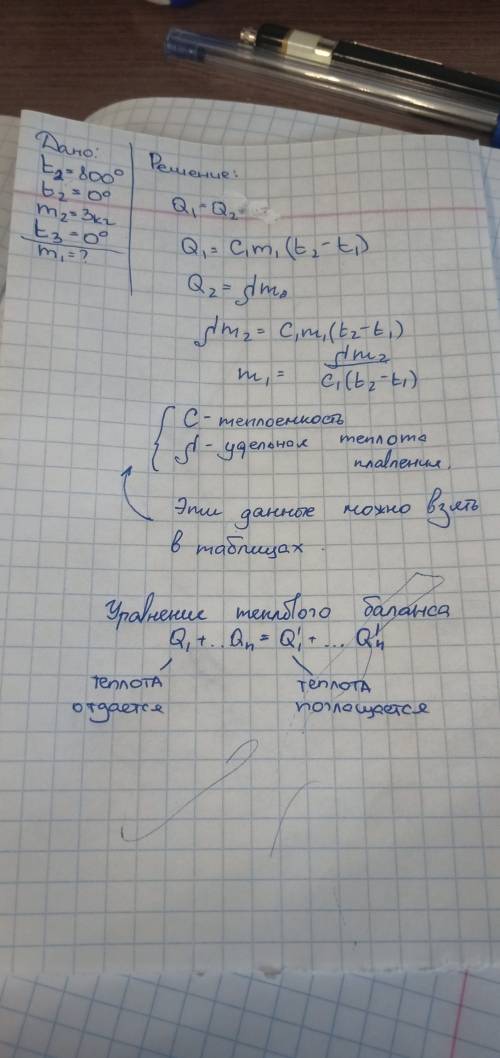 Дано:
t₂ = 800°
t₂ = 0°
m₂ = 3кг
t₃ = 0°
m₁ = ?
Решение:
Q₁ = Q₂ =
Q₁ = C₁m₁(t₂ - t₁)
Q₂ = λm₂
λm₂ = C₁m₁(t₂ - t₁)
m₁ = λm₂ / C₁(t₂ - t₁)
C - теплоемкость
λ - удельная теплота
плавления.
Эти данные можно взять
в таблицах.
Уравнение теплового баланса
Q₁ + ... Qₙ = Q₁' + ... Qₙ'
теплота
отдается
теплота
поглощается